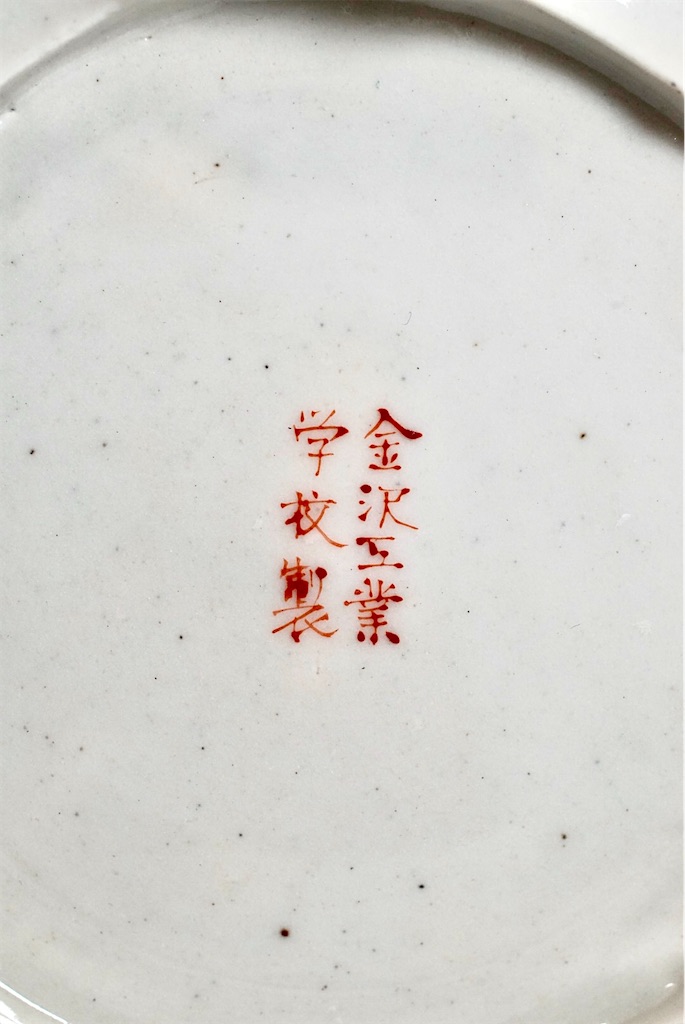 金沢工業
学校製